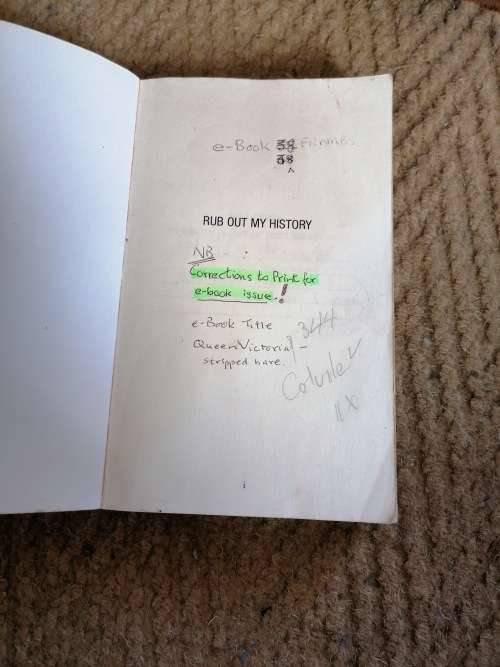 e-Book 58 FRAMES
48
^
RUB OUT MY HISTORY
NB - :
Corrections to Print for
e-book issue.!
e-Book Title
Queen Victoria -
stripped bare.
p 344
i